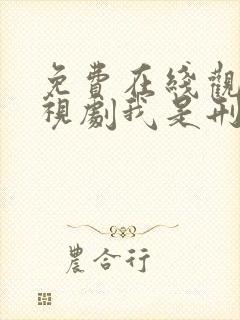 免費在綫觀
視劇我是刑
農合行